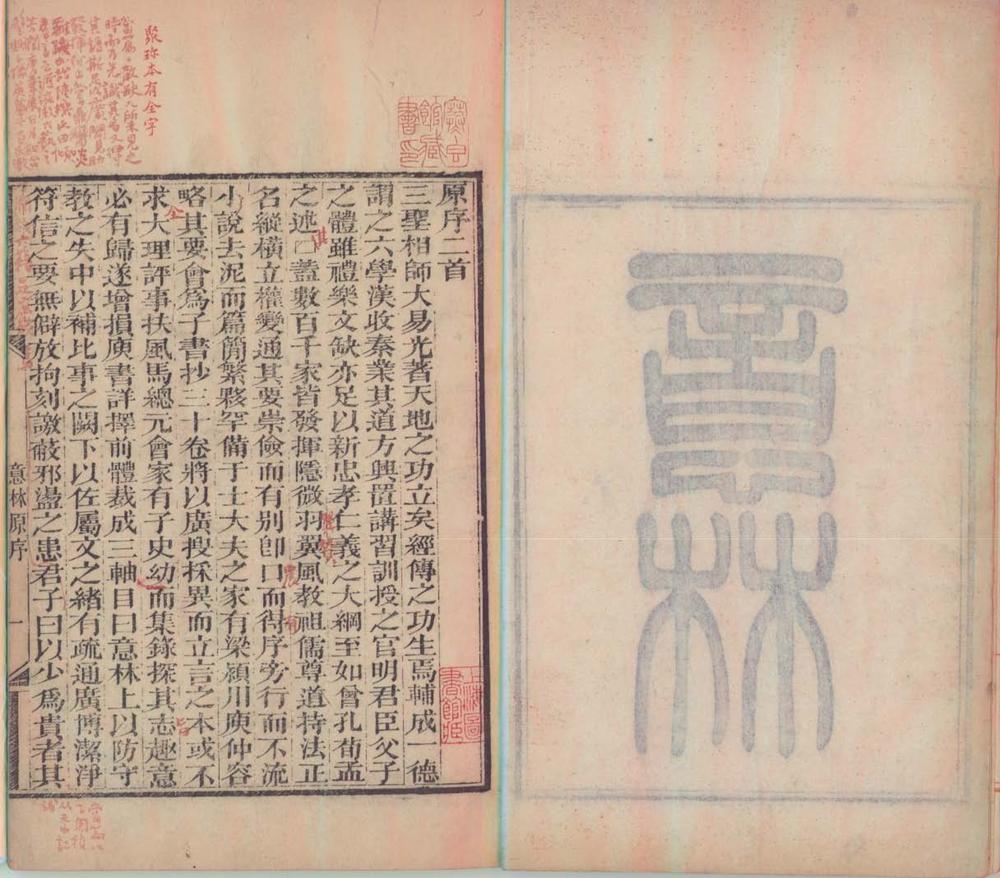 意林
原序二首
三聖相師大易光著天地之功立矣經傳之功生焉輔成一德
謂之六學漢收秦業其道方興置講習訓授之官明君臣父子
之體雖禮樂文缺亦足以新忠孝仁義之大綱至如曾孔荀孟
之述□蓋數百千家皆發揮隱微羽翼風教祖儒尊道持法正
名縱橫立權變通其要崇儉而有別卽口而得序旁行而不流
小說去泥而篇簡繁夥罕備于士大夫之家有梁潁川庾仲容
略其要會爲子書抄三十卷將以廣搜採異而立言之本或不
求大理評事扶風馬總元會家有子史幼而集錄探其志趣意
必有歸遂增損庾書詳擇前體裁成三軸目曰意林上以防守
教之失中以補比事之闕下以佐屬文之緒有疏通廣博潔淨
符信之要無僻放拘刻譤蔽邪盪之患君子曰以少爲貴者其
意林原序
一
聚珍本有全字
上海圖
書館藏